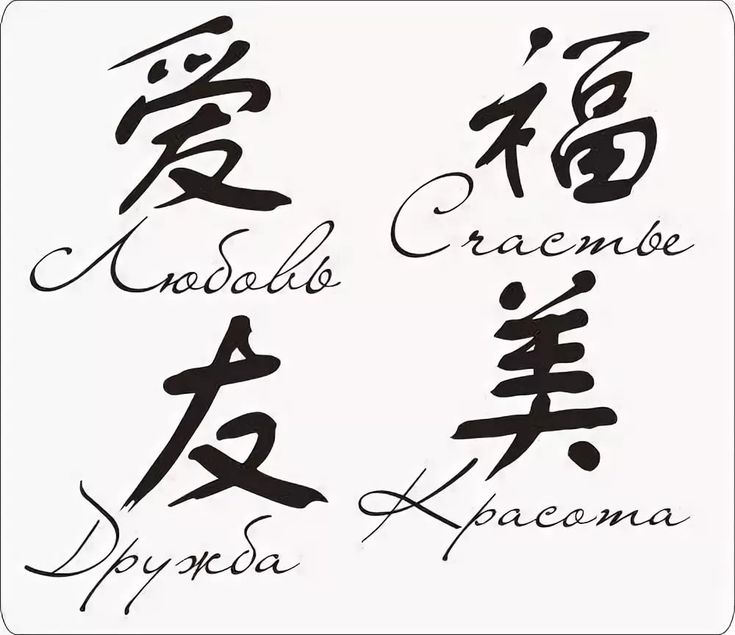 爱 福
Любовь Счастье
友 美
Дружба Красота